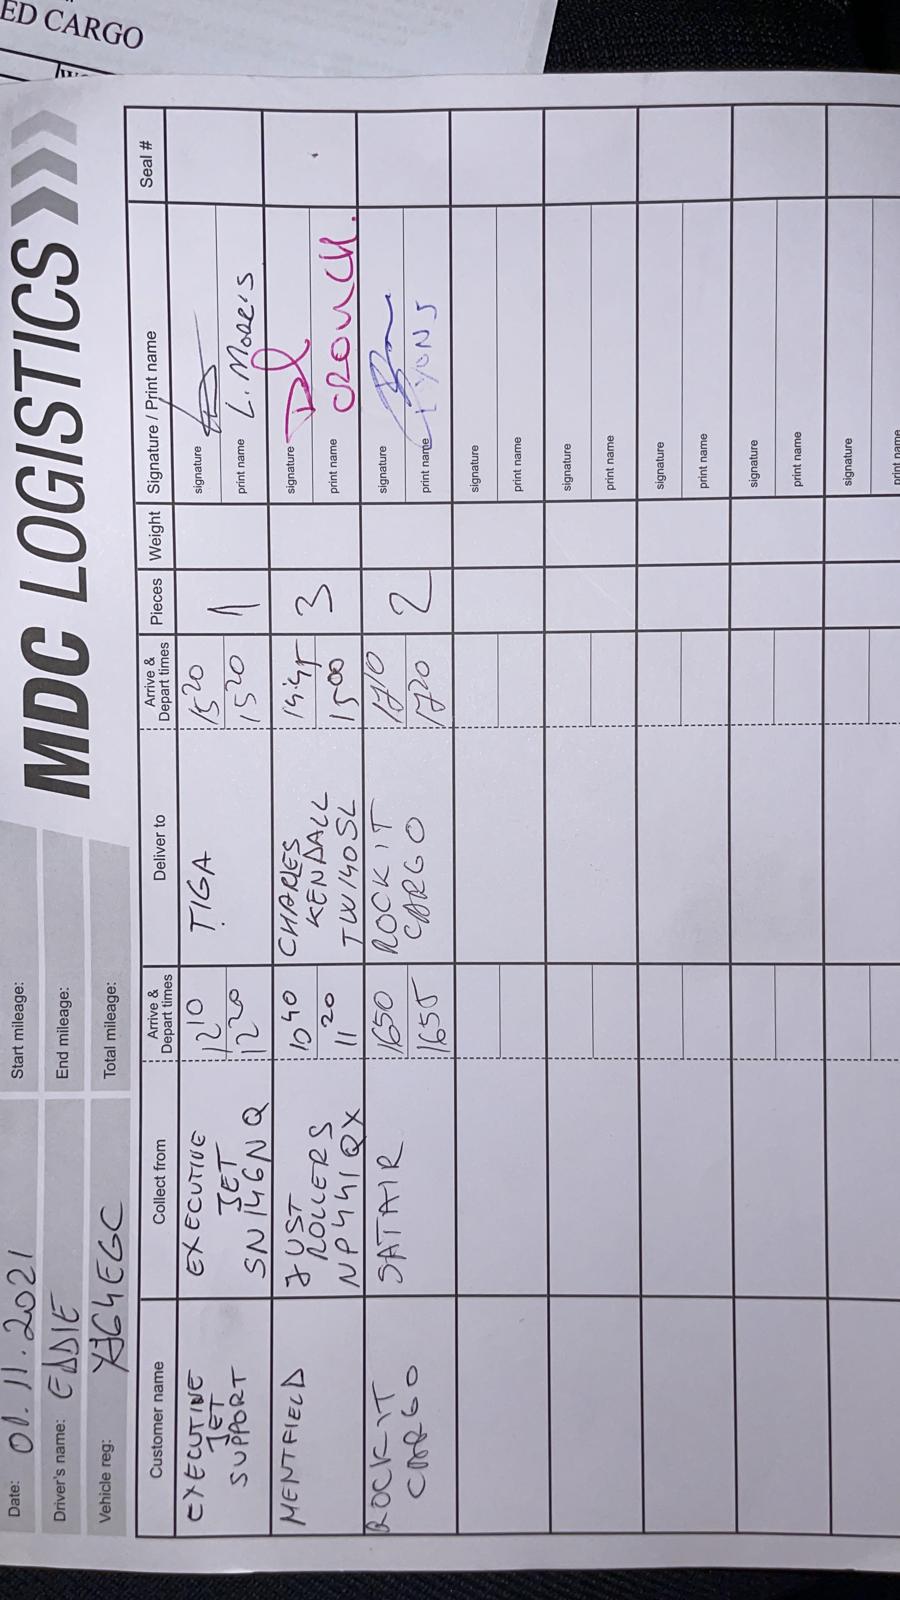 ED CARGO
MDC LOGISTICS
Date: 01.11.2021
Start mileage:
Driver's name: EDDIE
End mileage:
Vehicle reg:
Total mileage:
Customer name Collect from Arrive & Depart times Deliver to Arrive & Depart times Pieces Weight Signature / Print name Seal #
EXECUTINE
JET
SUPPORT
EXECUTIVE
JET
SN146NQ
12 10
12 20
TIGA
15 20
15 20
1
signature
print name L. MORRIS
MENTFIELD
JUST
ROLLERS
NP441QX
10 40
11 20
CHARLES
KENDALL
TW140SL
14:45
15 00
3
signature
print name CROUCH.
ROCKIT
CARGO
SATAIR
1650
1655
ROCKIT
CARGO
1710
1720
2
signature
print name LYONS
signature
print name
signature
print name
signature
print name
signature
print name
signature
print name